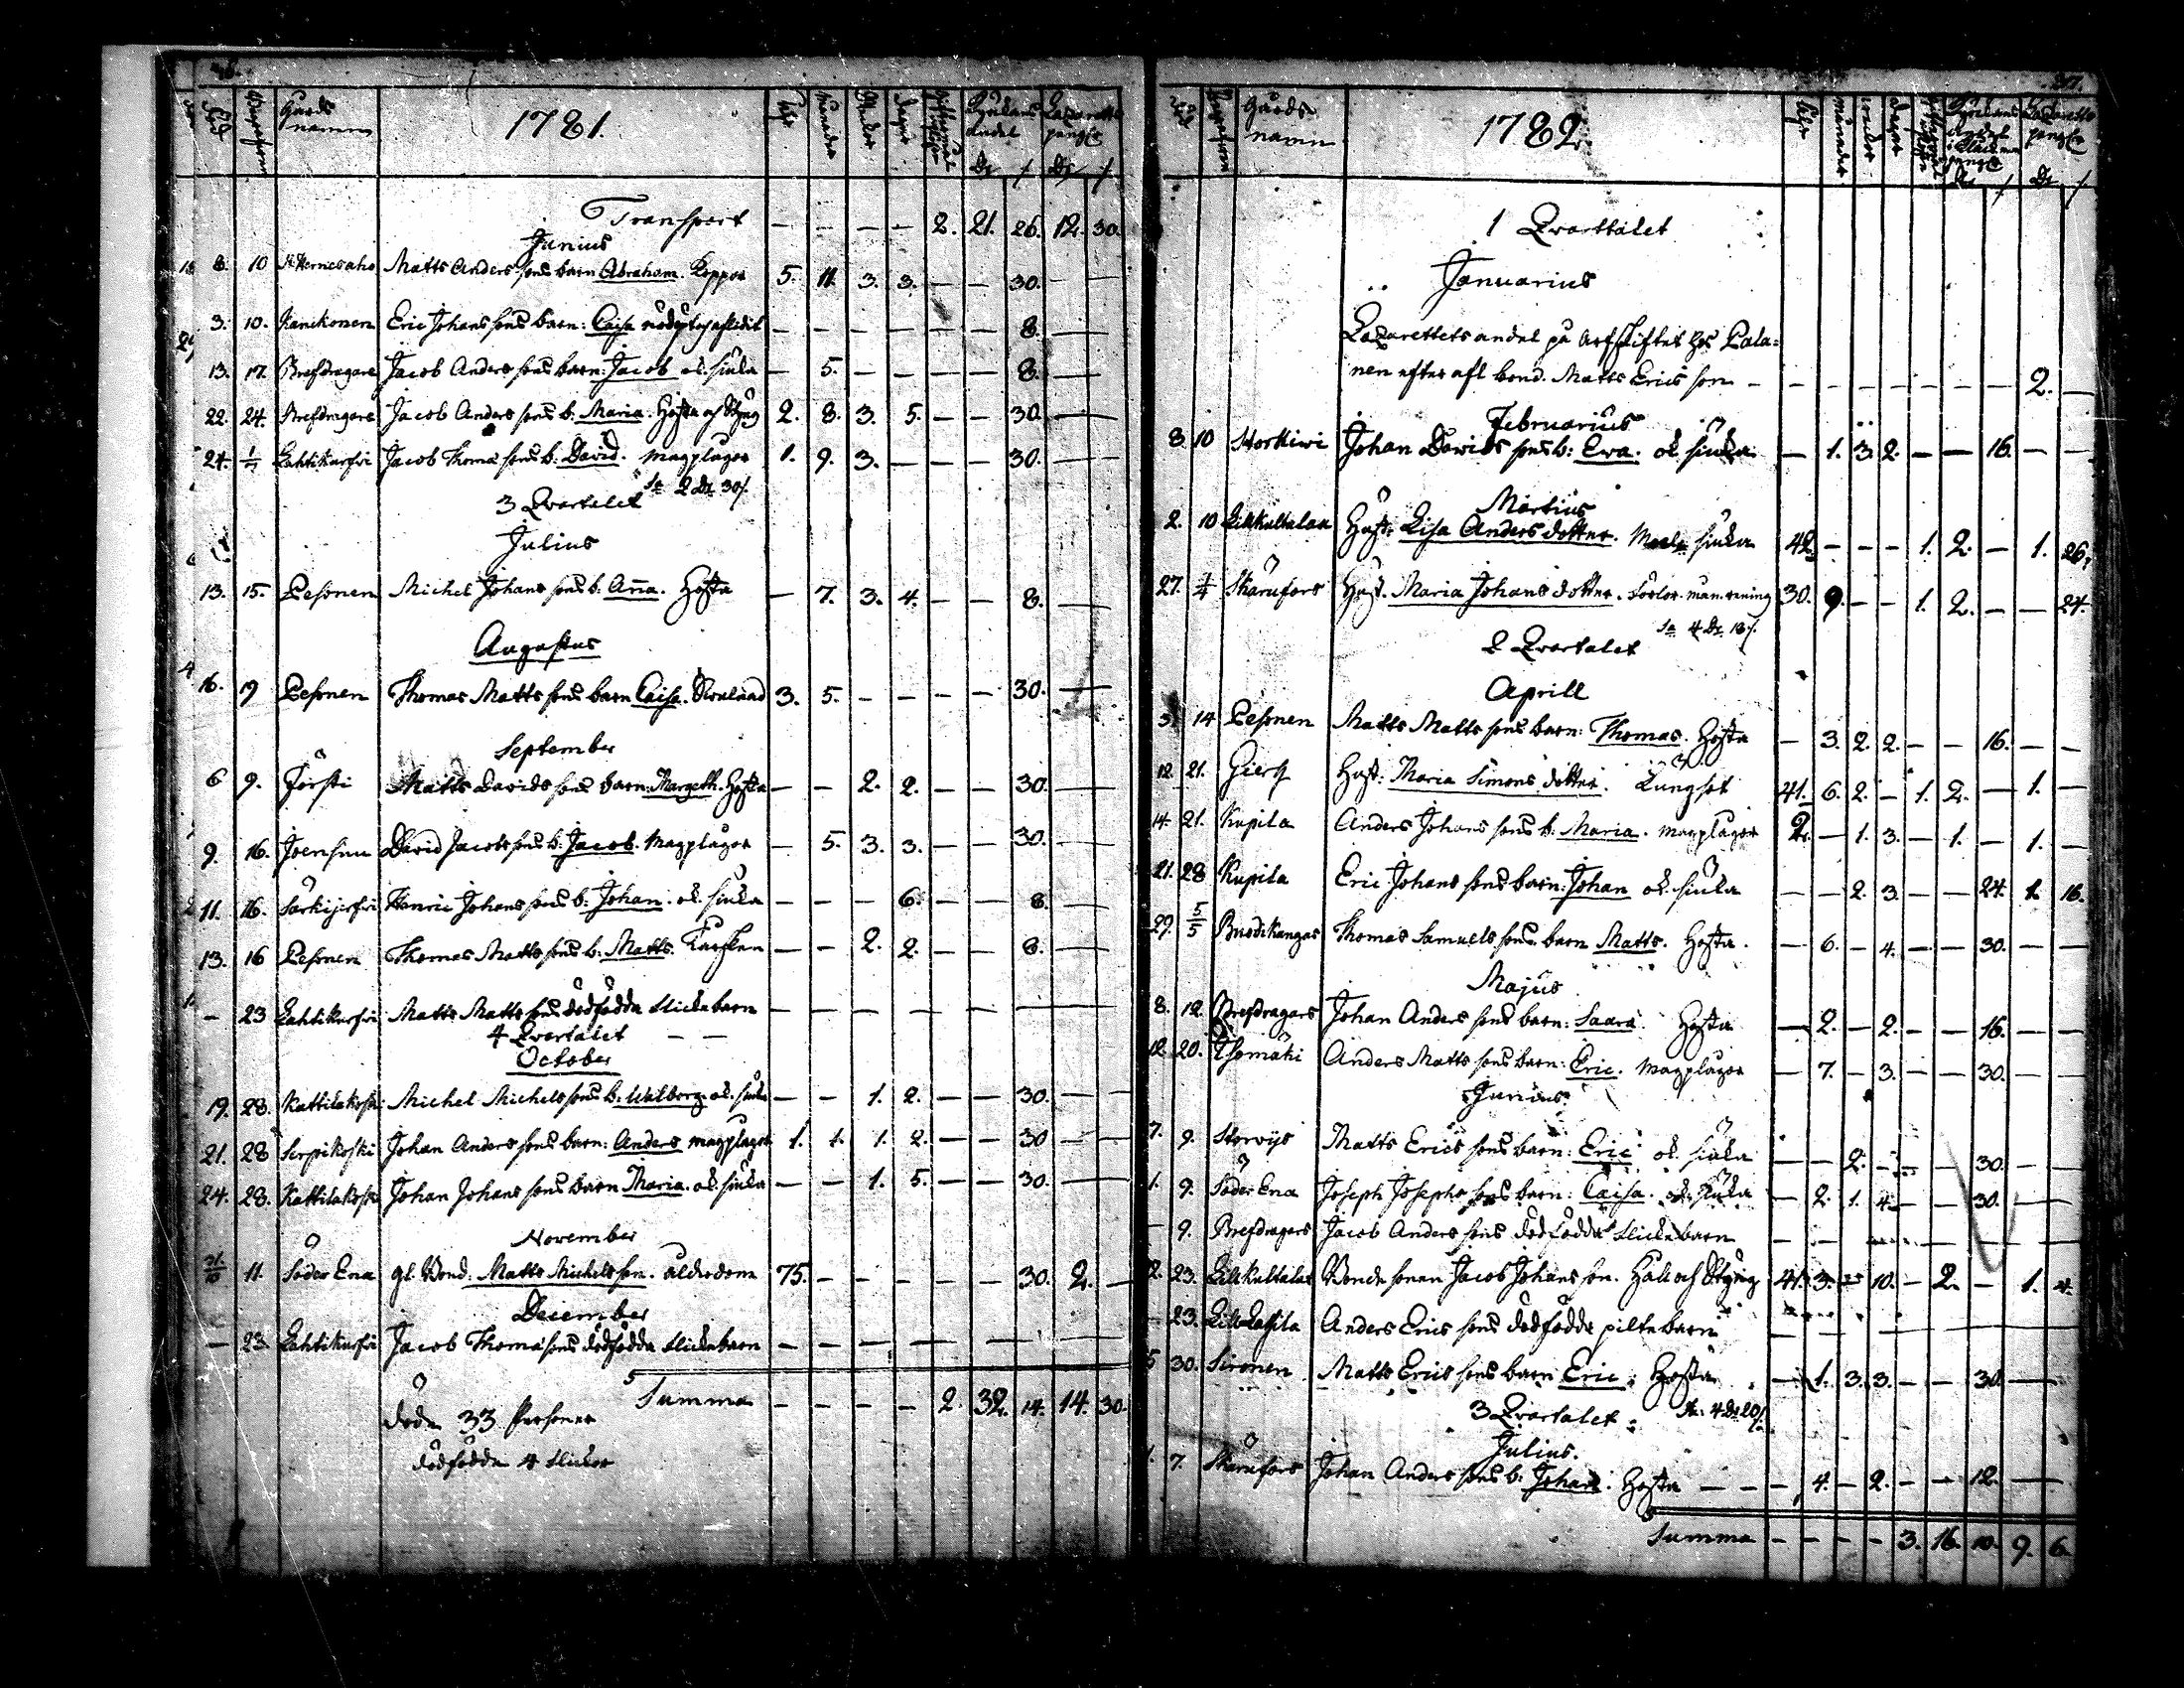 Gårds namn 1781. åhr månader Wekor dagar Kyrckans andel Lazaretts peng:r
Dr / Dr /
Transport — — — — 2. 21. 26. 12. 30.
Junius
8. 10 Matts Anders sons barn Abraham. Koppor 5. 11. 3. 3. — — 30. — —
3. 10. Eric Johans sons barn: Caisa nödöpt och afledit — — — — — — 8. —
13. 17. Brefdragare Jacob Anders sons barn: Jacob ok. siuka — 5. — — — — 8. —
22. 24. Brefdragare Jacob Anders sons b. Maria. Hosta och Styng 2. 8. 3. 5. — — 30. —
24. 1/7 Lahtikurfvi Jacob Thomæ sons b: David. magplågor 1. 9. 3. — — — 30. —
Sa 2 Dr 30/.
3 Qvartalet
Julius
13. 15. Pesonen Michel Johans sons b. Aña. Hosta — 7. 3. 4. — — 8. —
Augustus
16. 19 Pesonen Thomas Matts sons barn Caisa. 3. 5. — — — — 30. —
September
6 9. Törsti Matts Davids sons barn: Margeth. Hosta — — 2. 2. — — 30. —
9. 16. Joensuu David Jacobs sons b: Jacob. Magplågor — 5. 3. 3. — — 30. —
11. 16. Särkijerfvi Henric Johans sons b: Johan. ok. siuka — — — 6. — — 8. —
13. 16 Pesonen Thomas Matts sons b: Matts. — — 2. 2. — — 8. —
— 23 Lahtikurfvi Matts Matts sons dödfödda flickebarn — — — — — — — —
4 Qvartalet — —
October
19. 28. Kattilakoski Michel Michels sons b: Walborg ok. siuka — — 1. 2. — — 30. — —
21. 28 Serpikoski Johan Anders sons barn: Anders magplågor 1. 1. 1. 2. — — 30 — —
24. 28. Kattilakoski Johan Johans sons barn Maria. ok. siuka — — 1. 5. — — 30. —
November
31/10 11. Söder Ena gl. Bond. Matts Michels son. ålderdom 75. — — — — — 30. 2. —
December
— 23. Lahtikurfvi Jacob Thomæ sons dödfödda flickebarn — — — — — — — —
Summa — — — — 2. 32. 14. 14. 30.
Döda 33 Personer
dödfödda 4 flickor
87.
Gårds namn 1782. åhr månader wekor dagar Kyrckans andel Lazaretts peng:r
Dr / Dr /
1 Qvartalet
Januarius
Lazarettets andel på arfskiftet hos Pala=
nen efter afl. bond. Matts Erics son — — — — — — — — 2. —
Februarius
8. 10 Storkiwi Johan Davids sons b: Ewa. ok. siuka — 1. 3. 2. — — 16. — —
Martius
2. 10 Lillkultalax Hust: Lisa Anders dotter. siuka 42. — — — 1. 2. — 1. 26.
27. 1/4 Skärufors Hust. Maria Johans dotter. 30. 9. — — 1. 2. — — 24.
Sa 4 Dr 18/.
2 Qvartalet
Aprill
3. 14 Pesonen Matts Matts sons barn: Thomas. Hosta — 3. 2. 2. — — 16. — —
12. 21. Hust: Maria Simons dotter. Lungsot 41. 6. 2. — 1. 2. — 1. —
14. 21. Kupila Anders Johans sons b: Maria. magplågor 2. — 1. 3. — 1. — 1. —
21. 28 Kupila Eric Johans sons barn: Johan ok. siuka — — 2. 3. — — 24. 1. 16.
29. 5/5 Buodikangas Thomas Samuels sons barn Matts. Hosta. — 6. — 4. — — 30. — —
Majus
8. 12. Brefdragars Johan Anders sons barn: Saara. Hosta — 2. — 2. — — 16. — —
12. 20. Ysomäki Anders Matts sons barn: Eric. magplågor — 7. — 3. — — 30. — —
Junius.
7. 9. Storwijs Matts Erics sons barn: Eric ok. siuka — — 2. — — — 30. — —
1. 9. Söder Ena Joseph Josephs sons barn: Caisa. ok. siuka — 2. 1. 4. — — 30. — —
— 9. Brefdragars Jacob Anders sons dödfödda flickebarn — — — — — — —
2. 23. Lillkultalax Bonde sonen Jacob Johans son. Håll och Styng 41. 3. — 10. — 2. — 1. 4.
23. Lill Lassila Anders Erics sons dödfödda piltebarn — — — — — — —
5 30. Sironen Matts Erics sons barn Eric. Hosta — 1. 3. 3. — — 30. — —
3 Qvartalet Sa: 4 Dr 20/.
Julius.
1. 7. Skärufors Johan Anders sons b: Johan. Hosta — — — 4. — 2. — — 12. —
Summa — — — — 3. 16. 10. 9. 6.